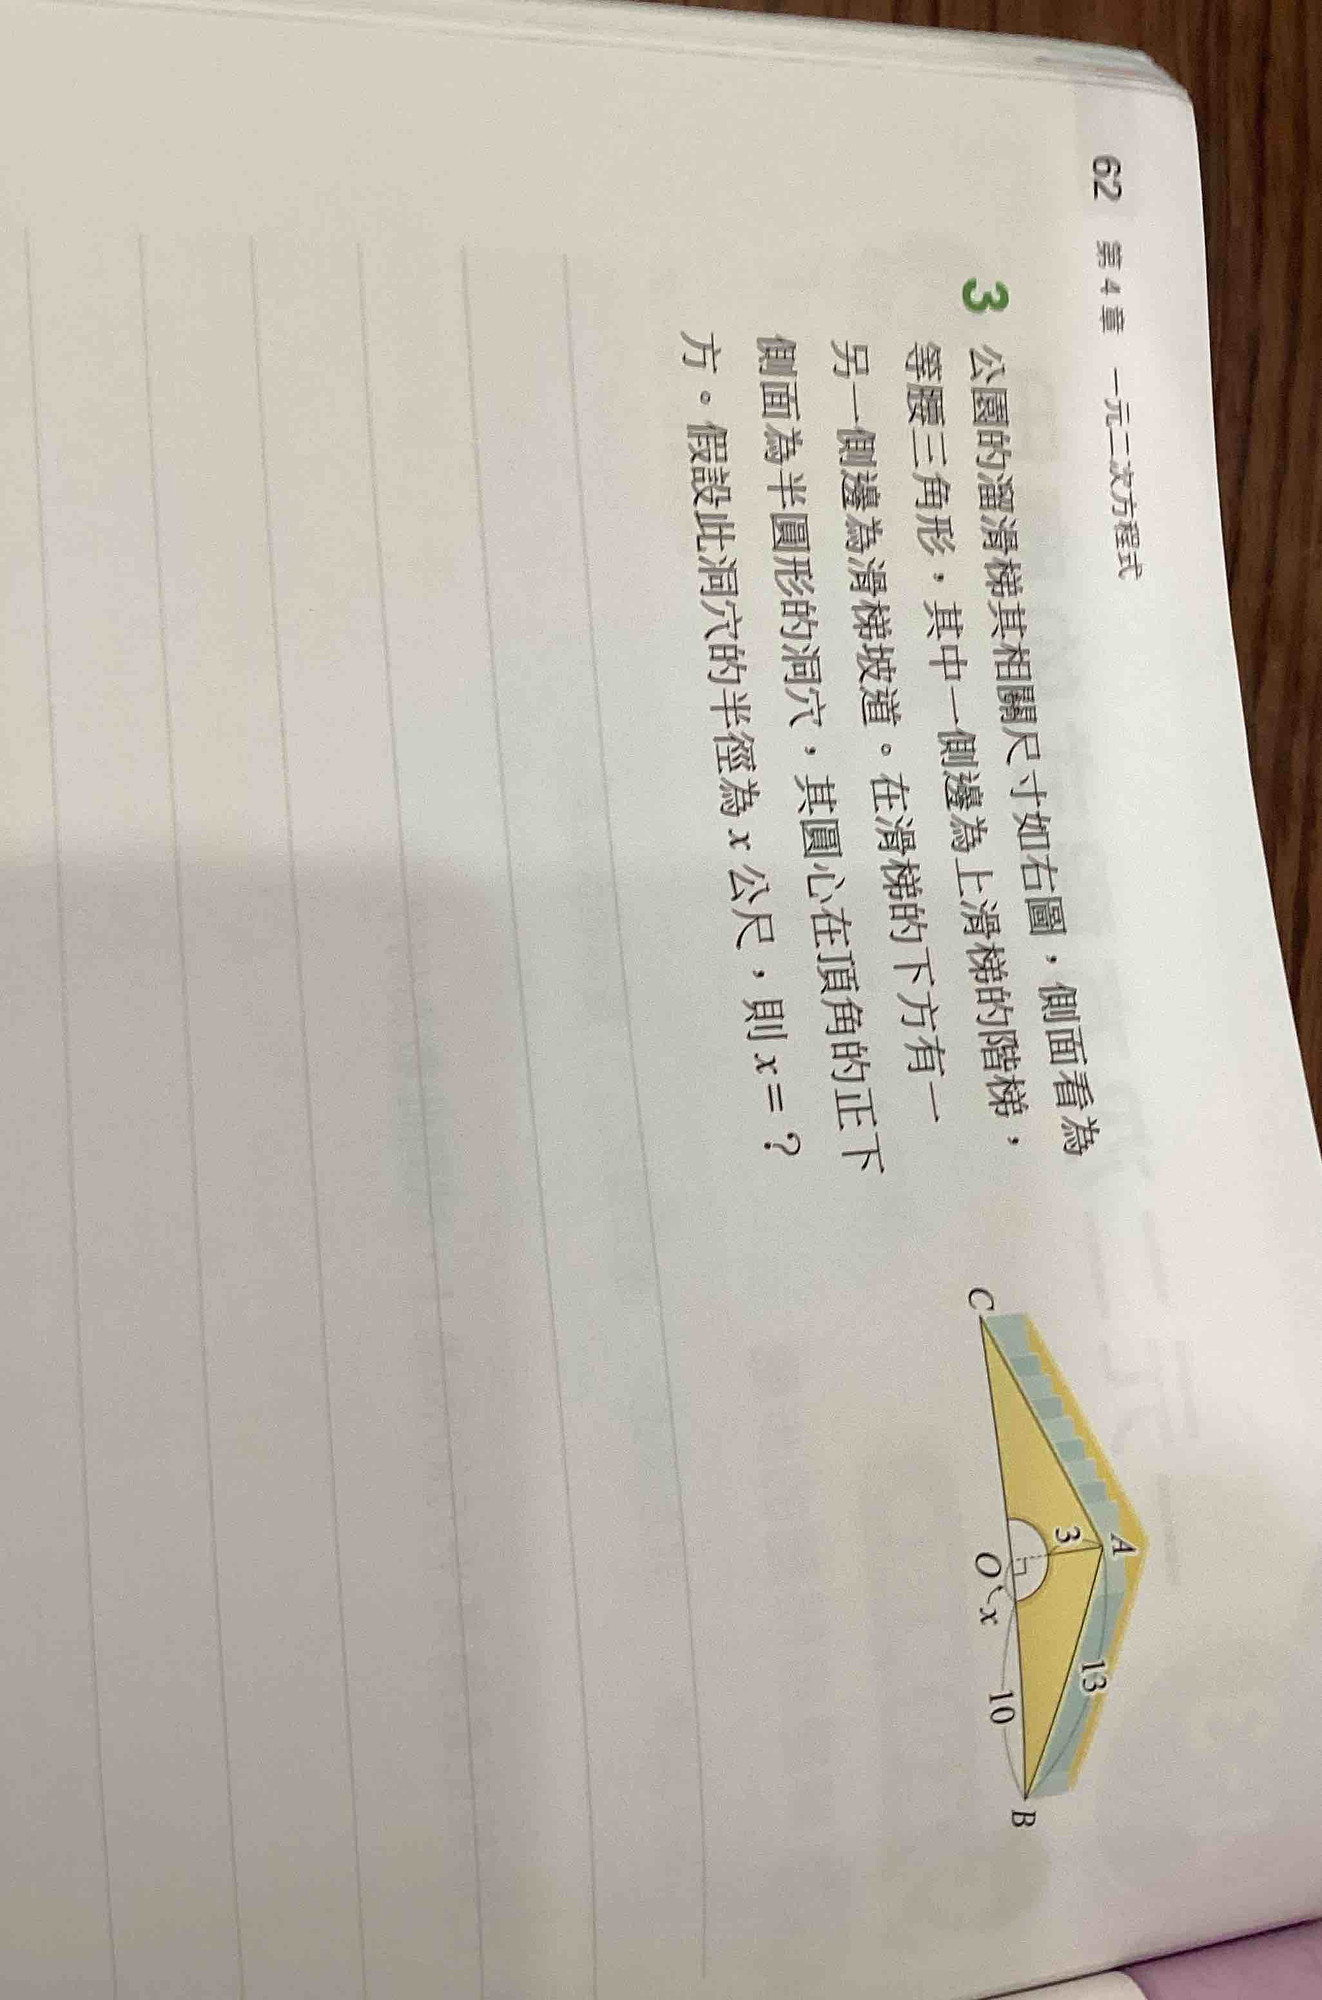 62 第 4 章 一元二次方程式
3 公園的溜滑梯其相關尺寸如右圖，側面看為
等腰三角形，其中一側邊為上滑梯的階梯，
另一側邊為滑梯坡道。在滑梯的下方有一
側面為半圓形的洞穴，其圓心在頂角的正下
方。假設此洞穴的半徑為 x 公尺，則 x = ？
A
3
13
C
O
x
10
B